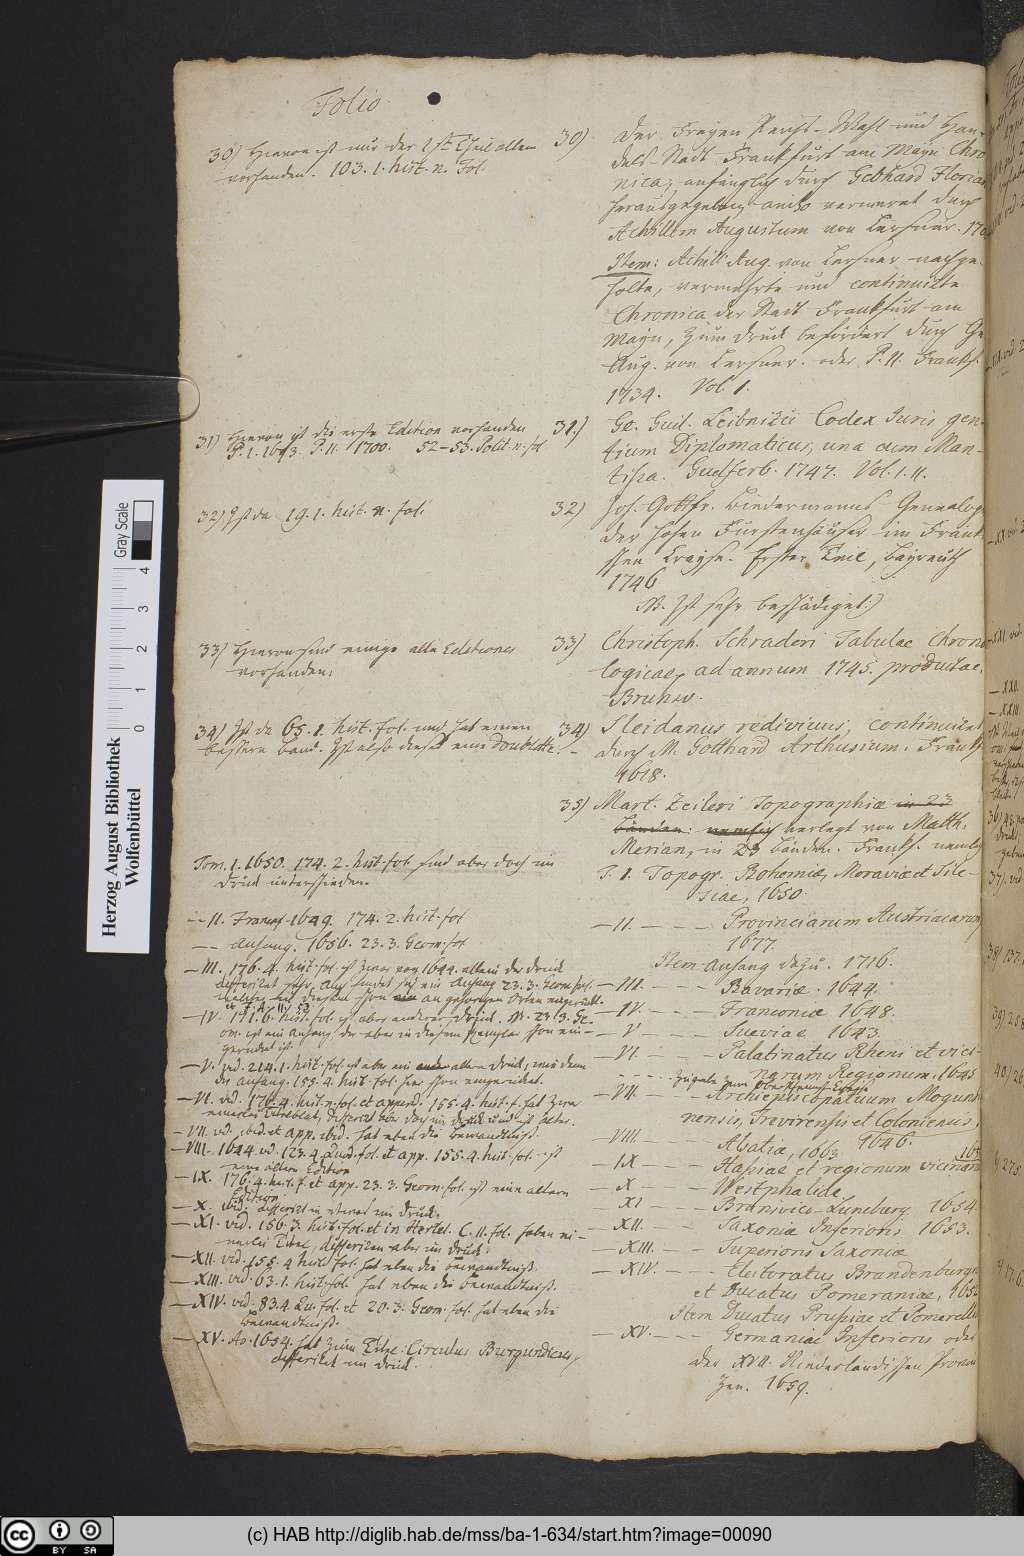 Folio
30) Hieran ist nur der 1ste Theil allein
vorhanden. 103. 1. hist. n. Fol.
31) Hieran ist die erste Edition vorhanden
P. 1. 1693. P. 11. 1700. 52-53. Polit. n. fol
32) Ist da 19. 1. hist. n. fol.
33) Hieran sind einige alte Editiones
vorhanden.
34) Ist da 65. 1. hist. fol. und hat einen
bessern band. Ist also dieses eine Doublette.
Tom. 1. 1650. 174. 2. hist. fol. sind aber doch im
Druck unterschieden.
-- 11. Francof. 1649. 174. 2. hist. fol
-- Anhang. 1656. 23. 3. Geom. fol
— III. 176. 4. hist. fol. ist zwar von 1644. allein der Druck
differiret sehr. Auch findet sich ein Anhang 23. 3. Geom. fol.
— IV. 171. 6. hist. fol. ist aber anderer Druck. It. 23. 3. Ge-
om. ist ein Anhang der aber in diesem Exemplar schon ein-
gerücket ist.
— V. vid. 214. 1. hist. fol. ist aber ein alter Druck, wie denn
der Anhang. 155. 4. hist. fol. hier schon eingerücket.
— VI. vid. 176. 4. hist. n. fol. et append. 155. 4. hist. f. hat zwar
einerley Titelblat, differirt aber doch im Druck und ist älter.
— VII. vid. ibid. et app. ibid. hat eben die bewandtniß.
— VIII. 1644 vid. 123. 4. Quod. fol. et app. 155. 4. hist. fol. ist
eine ältere Edition
— IX. 176. 4. hist. f. et app. 23. 3. Geom. fol. ist eine ältere
Edition.
— X. ibid. differirt in etwas im Druck.
— XI. vid. 156. 3. hist. fol. et in Hertel. C. 11. fol. haben ei-
nerley Titel, differiren aber im Druck.
— XII. vid. 155. 4 hist. fol. hat eben die bewandtniß.
— XIII. vid. 63. 1. hist. fol. hat eben die bewandtniß.
— XIV. vid. 83. 4. Qu. fol. et 20. 3. Geom. fol. hat eben die
bewandtniß.
— XV. Ao. 1654. hat zum Titel: Circulus Burgundicus,
differiret im Druck.
30) Der Freyen Reichs-Wahl und Han-
dels-Stadt Franckfurt am Mayn Chro
nica, anfänglich durch Gebhard Florian
herausgegeben, anitzo vermehret durch
Achillem Augustum von Lersner. 170
Item: Achill. Aug. von Lersner nachge-
holte, vermehrte und continuirte
Chronica der Stadt Franckfurt am
Mayn, zum Druck befördert durch Ge
Aug. von Lersner. oder P. 11. Franckf.
1734. Vol. 1.
31.) Ge. Guil. Leibnitii Codex Juris gen-
tium Diplomaticus, una cum Man-
tissa. Guelferb. 1747. Vol. 1. 11.
32) Joh. Gottfr. Biedermanns Genealog
der hohen Fürstenhäuser im Fränki
schen Crayse. Erster Theil, Bayreuth
1746
NB. Ist sehr beschädiget:)
33) Christoph. Schraderi Tabulae Chrono
logicae, ad annum 1745. productae.
Brunsv.
34) Sleidanus redivivus, continuiret
durch M. Gotthard Arthusium. Franckf.
1618.
35) Mart. Zeileri Topographiæ in 23
Bänden: nemlich verlegt von Matth.
Merian, in 23 Bänden. Franckf. nemlich
T. 1. Topogr. Bohemiæ, Moraviæ et Sile-
siae, 1650.
— 11. — — — Provinciarum Austriacarum
1677
Item Anhang dazu. 1716.
— III. — — — Bavariæ. 1644.
— IV. — — — Franconiæ 1648.
— V — — — Sueviae 1643.
— VI. — — — Palatinatus Rheni et vici-
narum Regionum. 1645
— VII. — — — Archiepiscopatuum Mogunti-
nensis, Trevirensis et Coloniensis,
1646.
— VIII. — — — Alsatiæ, 1663.
— IX — — — Hassiae et regionum vicinarum
— X — — — Westphaliae
— XI — — — Brunsvico-Luneburg. 1654.
— XII. — — — Saxoniæ Inferioris 1653.
— XIII. — — — Superioris Saxoniæ
— XIV. — — — Electoratus Brandenburgici
et Ducatus Pomeraniae, 1652
Item Ducatus Prussiae et Pomerelliae
— XV. — — — Germaniae Inferioris oder
der XVII. Niederländischen Provin
zen. 1659.
Gray Scale
0 1 2 3 4
Herzog August Bibliothek
Wolfenbüttel
cc BY SA
(c) HAB http://diglib.hab.de/mss/ba-1-634/start.htm?image=00090